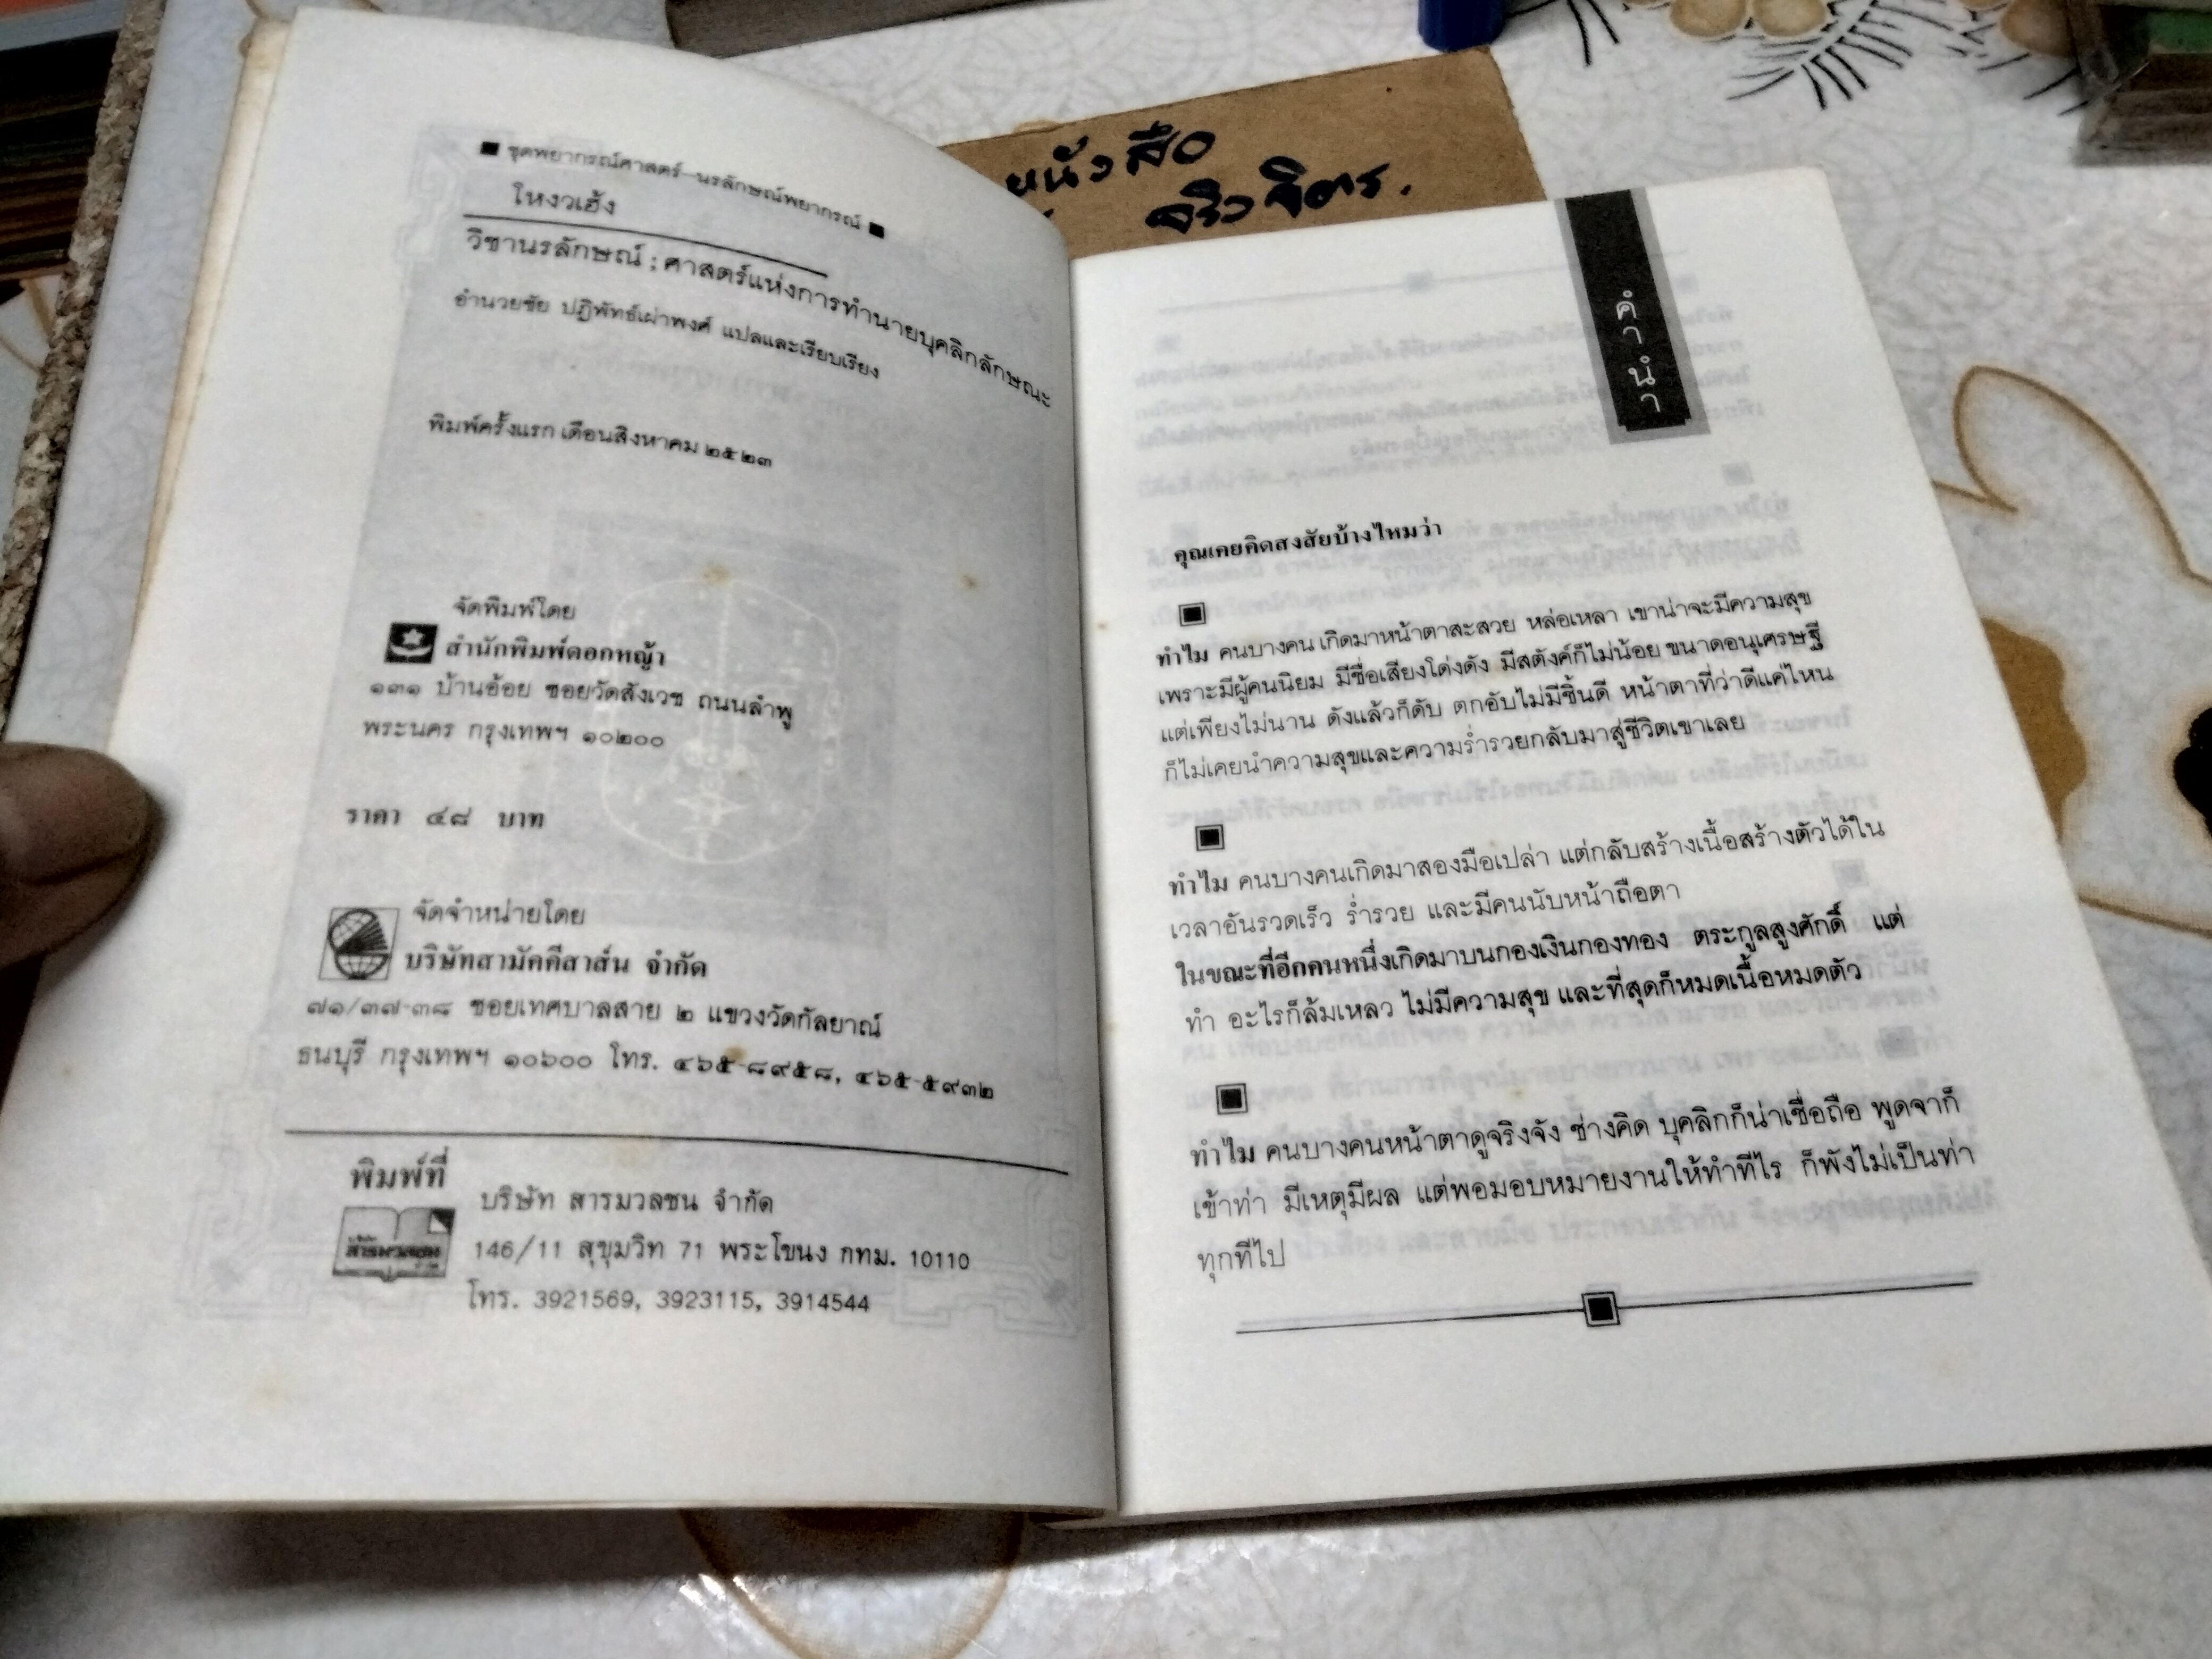 ■ ชุดพยากรณ์ศาสตร์–นรลักษณ์พยากรณ์ ■
โหงวเฮ้ง
วิชานรลักษณ์ ; ศาสตร์แห่งการทำนายบุคลิกลักษณะ
อำนวยชัย ปฏิพัทธ์เผ่าพงศ์ แปลและเรียบเรียง
พิมพ์ครั้งแรก เดือนสิงหาคม ๒๕๒๓
จัดพิมพ์โดย
สำนักพิมพ์ดอกหญ้า
๑๓๑ บ้านอ้อย ซอยวัดสังเวช ถนนลำพู
พระนคร กรุงเทพฯ ๑๐๒๐๐
ราคา ๔๘ บาท
จัดจำหน่ายโดย
บริษัทสามัคคีสาส์น จำกัด
๗๑/๓๗-๓๘ ซอยเทศบาลสาย ๒ แขวงวัดกัลยาณ์
ธนบุรี กรุงเทพฯ ๑๐๖๐๐ โทร. ๔๖๕-๘๙๕๘, ๔๖๕-๕๙๓๒
พิมพ์ที่
สารมวลชน
บริษัท สารมวลชน จำกัด
146/11 สุขุมวิท 71 พระโขนง กทม. 10110
โทร. 3921569, 3923115, 3914544
หนังสือ
จริงจิตร.
คำนำ
คุณเคยคิดสงสัยบ้างไหมว่า
ทำไม คนบางคน เกิดมาหน้าตาสะสวย หล่อเหลา เขาน่าจะมีความสุข
เพราะมีผู้คนนิยม มีชื่อเสียงโด่งดัง มีสตังค์ก็ไม่น้อย ขนาดอนุเศรษฐี
แต่เพียงไม่นาน ดังแล้วก็ดับ ตกอับไม่มีชิ้นดี หน้าตาที่ว่าดีแค่ไหน
ก็ไม่เคยนำความสุขและความร่ำรวยกลับมาสู่ชีวิตเขาเลย
ทำไม คนบางคนเกิดมาสองมือเปล่า แต่กลับสร้างเนื้อสร้างตัวได้ใน
เวลาอันรวดเร็ว ร่ำรวย และมีคนนับหน้าถือตา
ในขณะที่อีกคนหนึ่งเกิดมาบนกองเงินกองทอง ตระกูลสูงศักดิ์ แต่
ทำ อะไรก็ล้มเหลว ไม่มีความสุข และที่สุดก็หมดเนื้อหมดตัว
ทำไม คนบางคนหน้าตาดูจริงจัง ช่างคิด บุคลิกก็น่าเชื่อถือ พูดจาก็
เข้าท่า มีเหตุมีผล แต่พอมอบหมายงานให้ทำทีไร ก็พังไม่เป็นท่า
ทุกทีไป